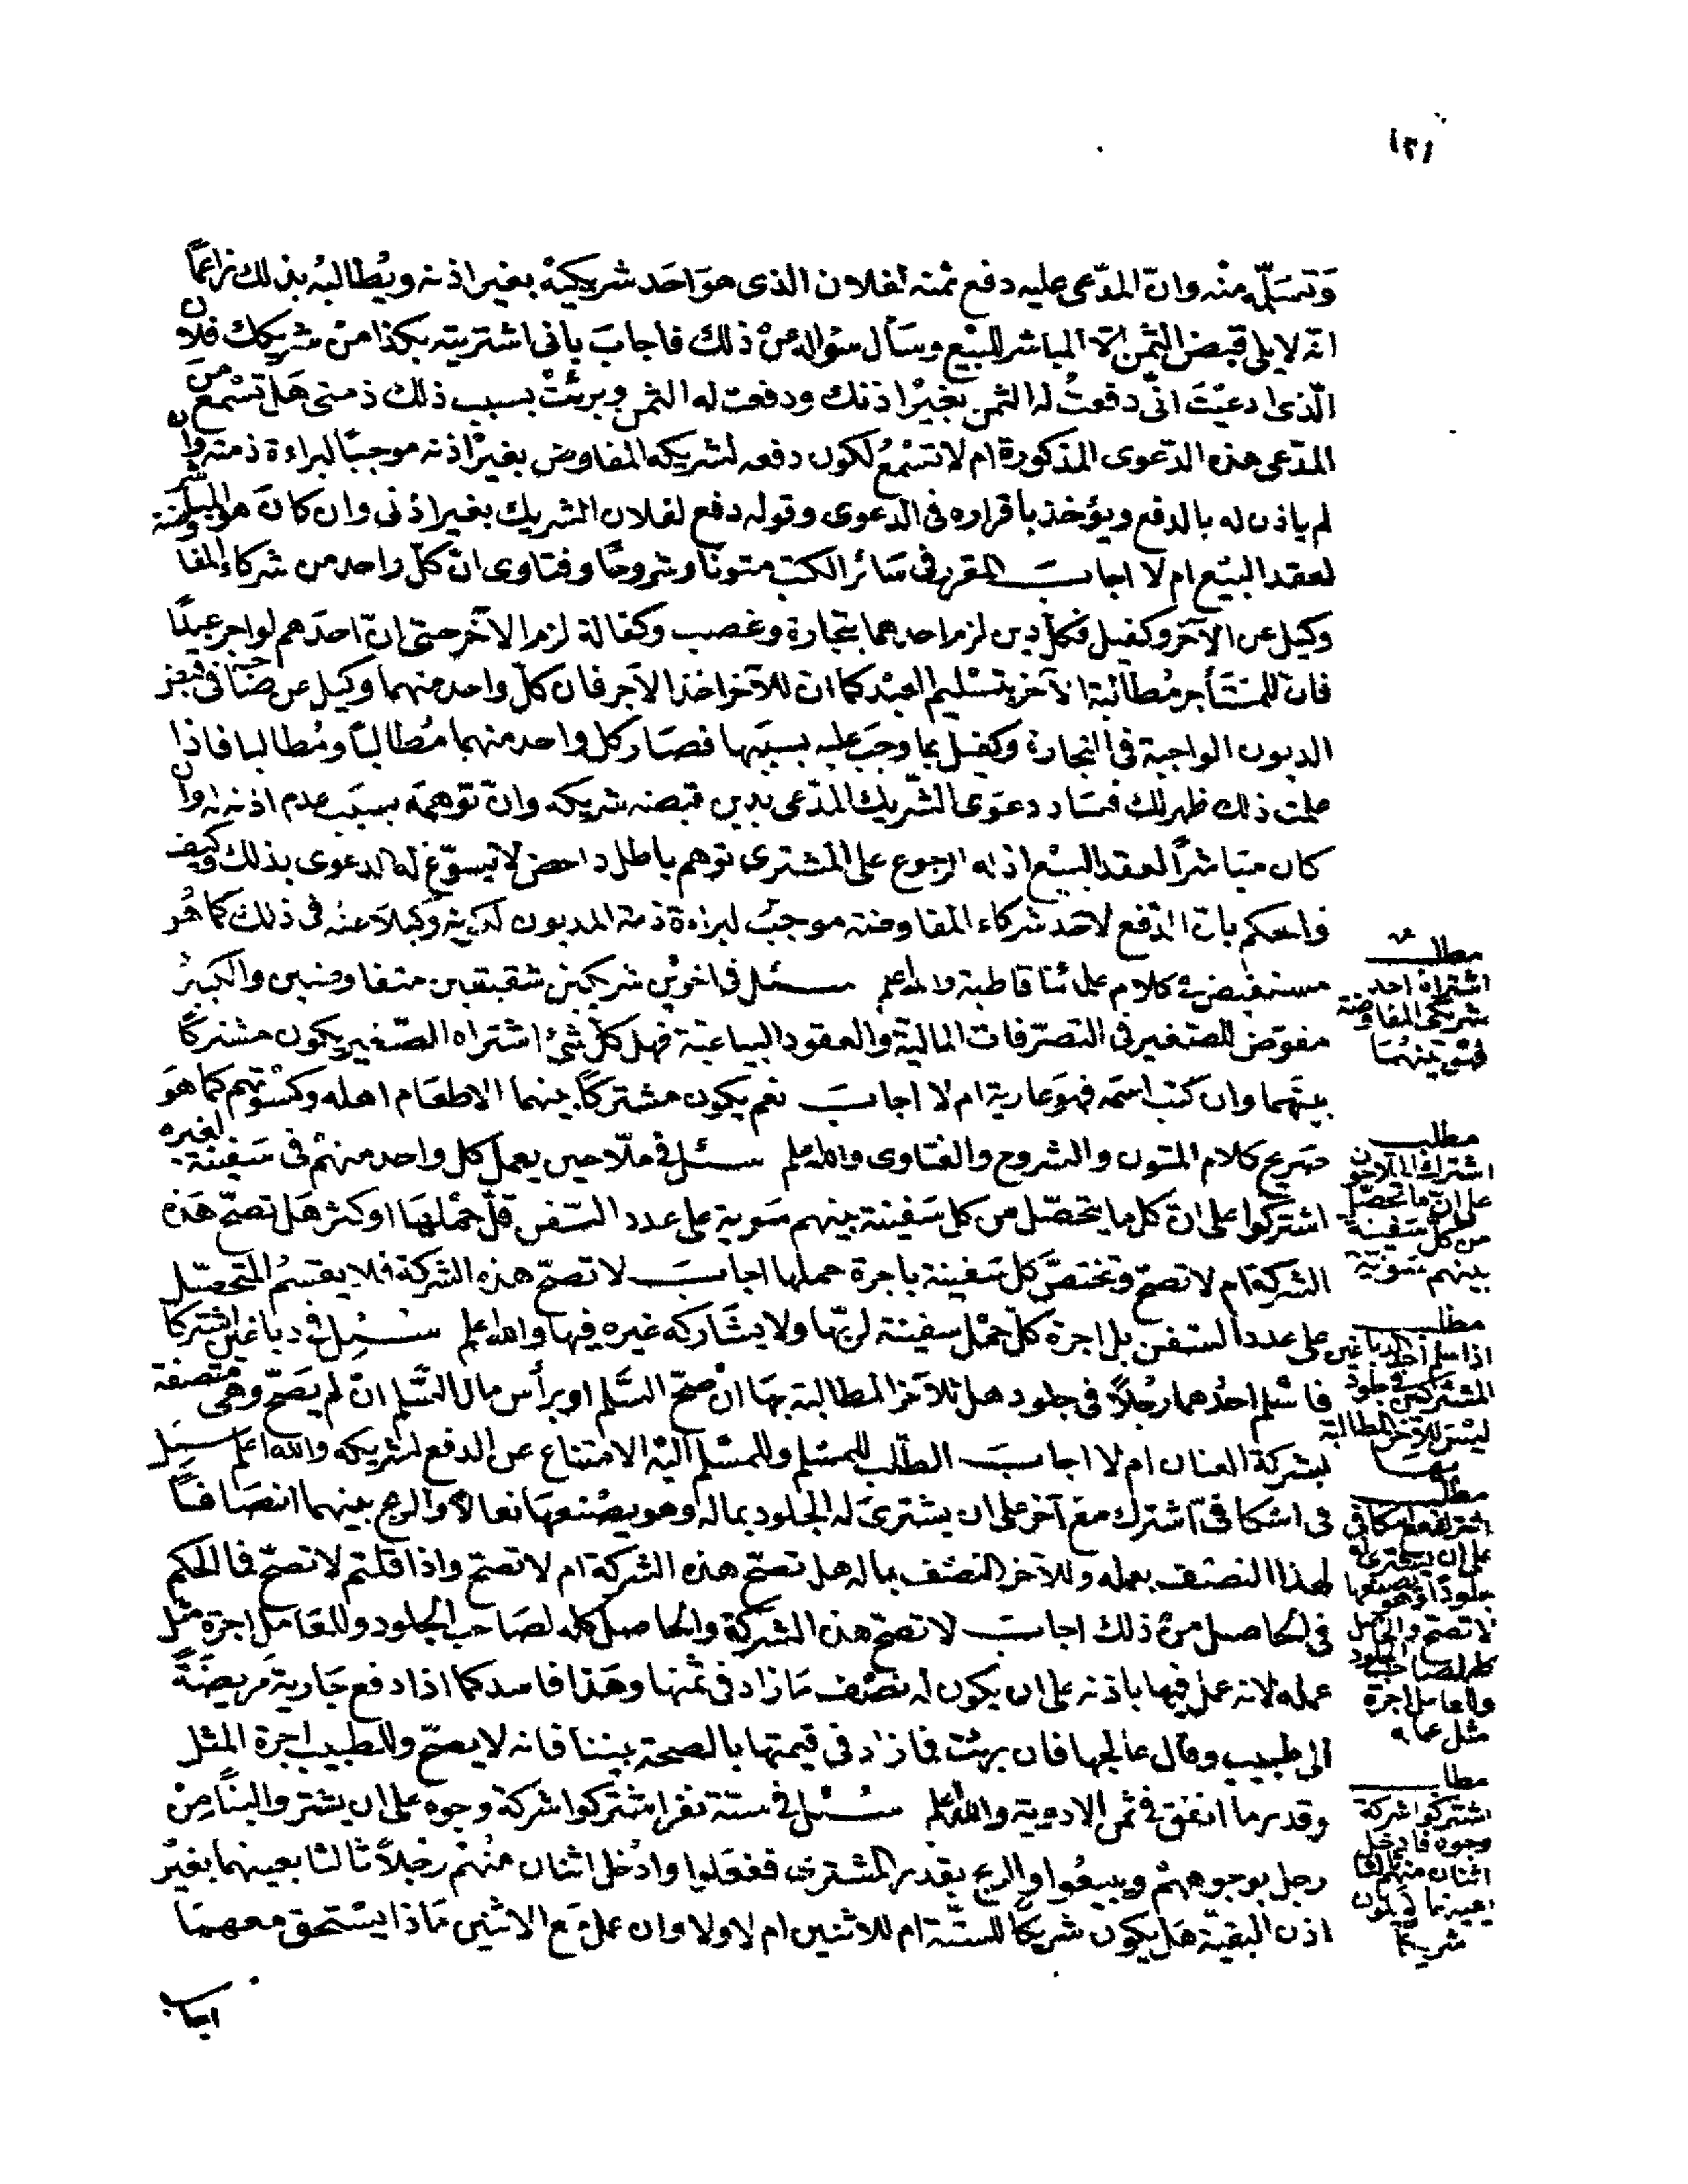 ١٢١
وتسلّمه منه وان المدّعى عليه دفع ثمنه لفلان الذى هو احد شريكيه بغير اذنه ويطالبه بذلك زاعماً
انه لا يلى قبض الثمن الّا المباشر للبيع وسأل سؤاله عن ذلك فاجاب بانى اشتريته بكذا من شريكك فلان
الّذى ادعيت انّى دفعت له الثمن بغير اذنك ودفعت له الثمن وبرئت بسبب ذلك ذمتى هل تسمع من
المدّعى هذه الدّعوى المذكورة ام لا تسمع لكون دفعه لشريكه المفاوض بغير اذنه موجباً لبراءة ذمته وان
لم ياذن له بالدفع ويؤخذ باقراره فى الدعوى وقوله دفع لفلان الشريك بغير اذنى وان كان هو المباشر
لعقد البيع ام لا اجاب المقرر فى سائر الكتب متونا وشروحا وفتاوى ان كلّ واحد من شركاء المفاوضة
وكيل عن الآخر وكفيل فكل دين لزم احدهما بتجارة وغصب وكفالة لزم الآخر حتى انّ احدهم لو اجر عبداً
فانّ للمستأجر مطالبة الآخر بتسليم العبد كما ان للآخر اخذ الاجر فان كلّ واحد منهما وكيل عن صاحبه فى قبض
الديون الواجبة فى التجارة وكفيل بما وجب عليه بسببها فصار كل واحد منهما مُطالِباً ومُطالَبا فاذا
علمت ذلك ظهر لك فساد دعوى الشريك المدّعى بدين قبضه شريكه وانّ توهمه بسبب عدم اذنه له وان
كان مباشراً لعقد البيع اذ له الرجوع على المشترى توهم باطل داحض لا يسوّغ له الدعوى بذلك وكيف
والحكم بان الدّفع لاحد شركاء المفاوضه موجب لبراءة ذمة المديون لكونه وكيلا عنه فى ذلك كما هو
مستفيض فى كلام علمائنا قاطبة والله اعلم سئل فى اخوين شريكين شقيقين متفاوضين والكبير
مفوّض للصغير فى التصرّفات المالية والعقود البياعية فهل كلّ شئ اشتراه الصّغير يكون مشتركاً
بينهما وان كتب اسمه فهو عارية ام لا اجاب نعم يكون مشتركاً بينهما الا طعام اهله وكسوتهم كما هو
صريح كلام المتون والشروح والفتاوى والله اعلم سئل فى ملّاحين يعمل كل واحد منهم فى سفينة لغيره
اشتركوا على انّ كل ما يتحصّل من كل سفينة بينهم سوية على عدد السّفن قلّ حملها او كثر هل تصحّ هذه
الشركة ام لا تصحّ وتختصّ كل سفينة باجرة حملها اجاب لا تصحّ هذه الشركة فلا يقسم المتحصّل
على عدد السفن بل اجرة كلّ حمل سفينة لربّها ولا يشاركه غيره فيها والله اعلم سئل فى دباغين اشتركا
فاسلم احدهما رجلاً فى جلود هل للآخر المطالبة بها ان صحّ السّلم او برأس مال السّلم ان لم يصحّ وهى متصفة
بشركة العنان ام لا اجاب الطّلب للمسلم وللمسلم اليه الامتناع عن الدفع لشريكه والله اعلم سئل
فى اسكافىّ اشترك مع آخر على ان يشترى له الجلود بماله وهو يصنعها نعالا والربح بينهما انصافاً
لهذا النصف بعمله وللآخر النصف بماله هل تصحّ هذه الشركة ام لا تصحّ واذا قلتم لا تصحّ فما الحكم
فى الحاصل من ذلك اجاب لا تصحّ هذه الشركة والحاصل كله لصاحب الجلود وللعامل اجرة مثل
عمله لانه عمل فيها باذنه على ان يكون له نصف ما زاد فى ثمنها وهذا فاسد كما اذا دفع جارية مريضة
الى طبيب وقال عالجها فان برئت فما زاد فى قيمتها بالصحة بيننا فانه لا يصحّ وللطبيب اجرة المثل
وقدر ما انفق فى ثمن الادوية والله اعلم سئل فى ستة نفر اشتركوا شركة وجوه على ان يشتروا لبناً من
رجل بوجوههم ويبيعوا والربح بقدر المشترى ففعلوا وادخل اثنان منهم رجلاً ثالثا بعينهما بغير
اذن البقيّة هل يكون شريكاً للستّة ام للاثنين ام لا ولا وان عمل مع الاثنين ماذا يستحق معهما
اجاب
مطلب
اشتراه احد
شريكى المفاوضة
فهو بينهما
مطلب
اشترك الملاحون
على ان ما تحصّل
من كل سفينة
بينهم سوية
مطلب
اذا سلم احد الدباغين
المشتركين فى جلود
ليس للآخر المطالبة
بها
مطلب
اشترك مع اسكافى
على ان يشترى له
جلودا وهو يصنعها
لا تصحّ والحاصل
كله لصاحب الجلود
وللعامل اجرة
مثل عمله
مطلب
اشتركوا شركة
وجوه فادخل
اثنان منهم ثالثا
بعينهما لا يكون
شريكا